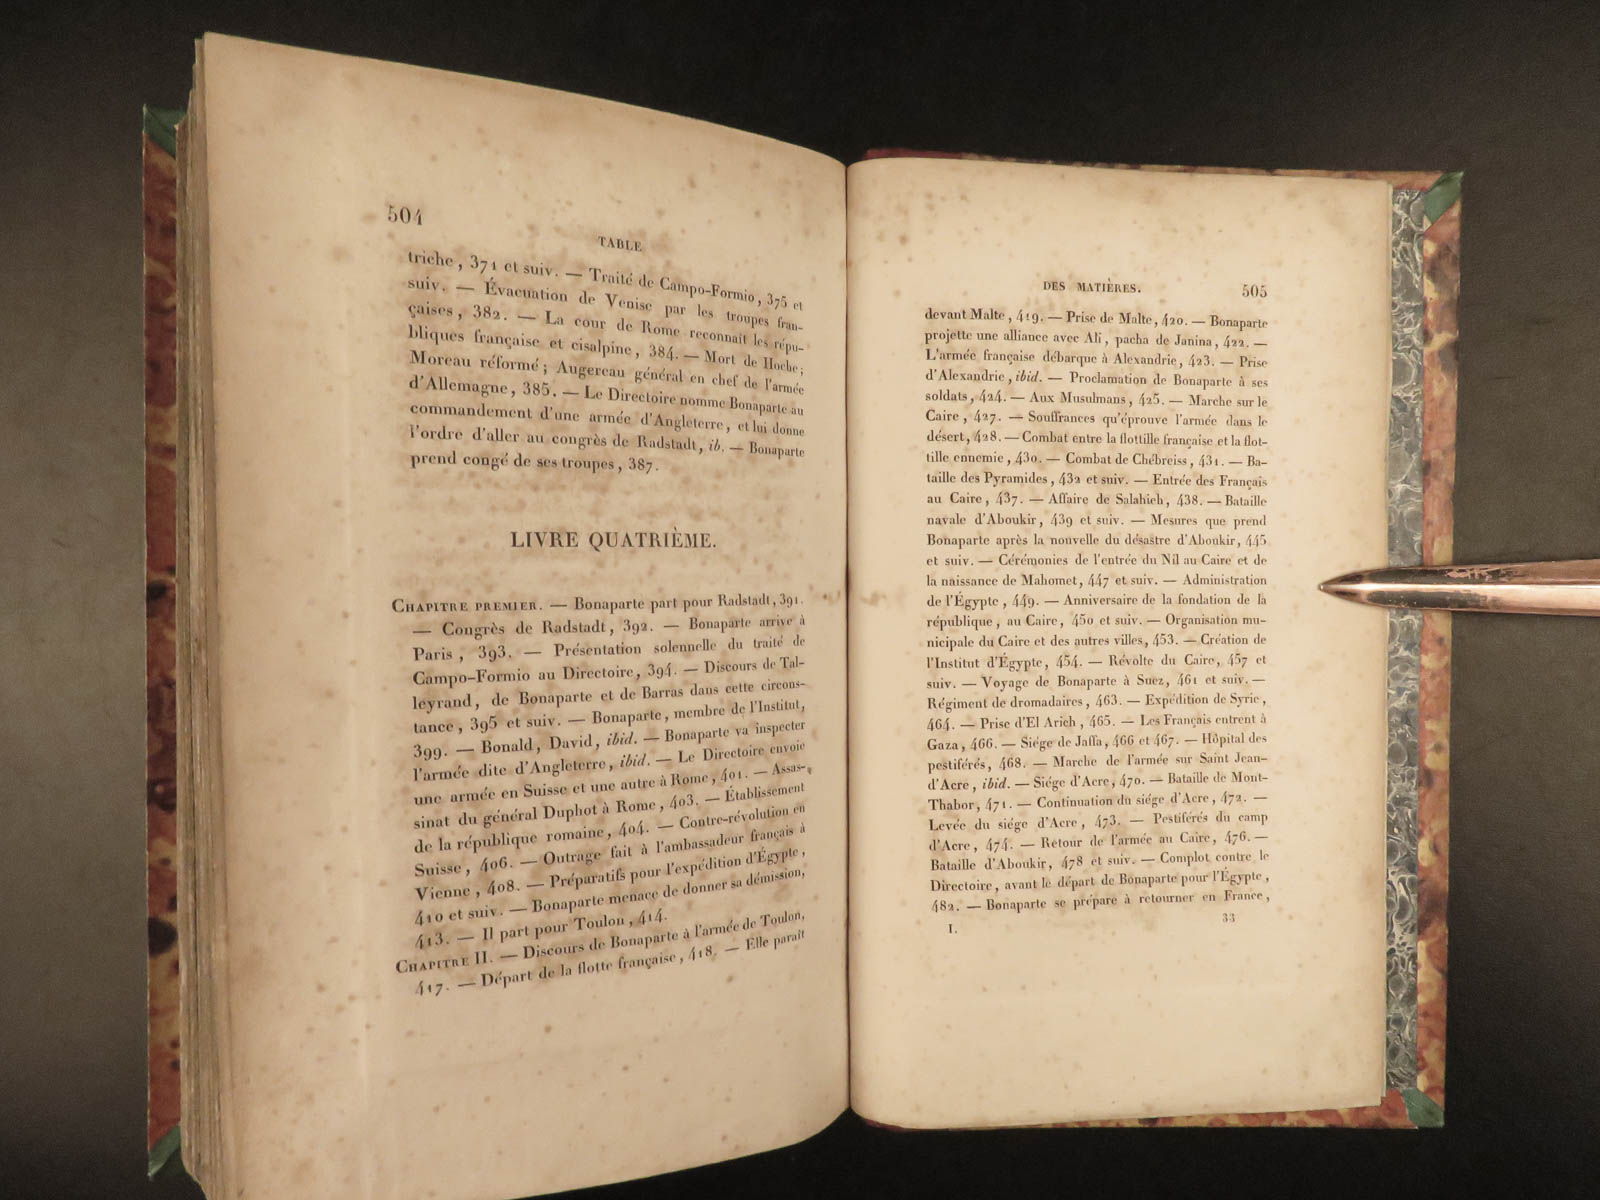 504
TABLE
triche, 371 et suiv. — Traité de Campo-Formio, 375 et
suiv. — Évacuation de Venise par les troupes fran-
çaises, 382. — La cour de Rome reconnaît les répu-
bliques française et cisalpine, 384. — Mort de Hoche;
Moreau réformé; Augereau général en chef de l'armée
d'Allemagne, 385. — Le Directoire nomme Bonaparte au
commandement d'une armée d'Angleterre, et lui donne
l'ordre d'aller au congrès de Radstadt, ib. — Bonaparte
prend congé de ses troupes, 387.
LIVRE QUATRIÈME.
CHAPITRE PREMIER. — Bonaparte part pour Radstadt, 391.
— Congrès de Radstadt, 392. — Bonaparte arrive à
Paris, 393. — Présentation solennelle du traité de
Campo-Formio au Directoire, 394. — Discours de Tal-
leyrand, de Bonaparte et de Barras dans cette circons-
tance, 395 et suiv. — Bonaparte, membre de l'Institut,
399. — Bonald, David, ibid. — Bonaparte va inspecter
l'armée dite d'Angleterre, ibid. — Le Directoire envoie
une armée en Suisse et une autre à Rome, 401. — Assas-
sinat du général Duphot à Rome, 403. — Établissement
de la république romaine, 404. — Contre-révolution en
Suisse, 406. — Outrage fait à l'ambassadeur français à
Vienne, 408. — Préparatifs pour l'expédition d'Égypte,
410 et suiv. — Bonaparte menace de donner sa démission,
413. — Il part pour Toulon, 414.
CHAPITRE II. — Discours de Bonaparte à l'armée de Toulon,
417. — Départ de la flotte française, 418. — Elle paraît
DES MATIÈRES. 505
devant Malte, 419. — Prise de Malte, 420. — Bonaparte
projette une alliance avec Ali, pacha de Janina, 422. —
L'armée française débarque à Alexandrie, 423. — Prise
d'Alexandrie, ibid. — Proclamation de Bonaparte à ses
soldats, 424. — Aux Musulmans, 425. — Marche sur le
Caire, 427. — Souffrances qu'éprouve l'armée dans le
désert, 428. — Combat entre la flottille française et la flot-
tille ennemie, 430. — Combat de Chébreiss, 431. — Ba-
taille des Pyramides, 432 et suiv. — Entrée des Français
au Caire, 437. — Affaire de Salahieh, 438. — Bataille
navale d'Aboukir, 439 et suiv. — Mesures que prend
Bonaparte après la nouvelle du désastre d'Aboukir, 445
et suiv. — Cérémonies de l'entrée du Nil au Caire et de
la naissance de Mahomet, 447 et suiv. — Administration
de l'Égypte, 449. — Anniversaire de la fondation de la
république, au Caire, 450 et suiv. — Organisation mu-
nicipale du Caire et des autres villes, 453. — Création de
l'Institut d'Égypte, 454. — Révolte du Caire, 457 et
suiv. — Voyage de Bonaparte à Suez, 461 et suiv. —
Régiment de dromadaires, 463. — Expédition de Syrie,
464. — Prise d'El Arich, 465. — Les Français entrent à
Gaza, 466. — Siége de Jaffa, 466 et 467. — Hôpital des
pestiférés, 468. — Marche de l'armée sur Saint Jean-
d'Acre, ibid. — Siége d'Acre, 470. — Bataille de Mont-
Thabor, 471. — Continuation du siége d'Acre, 472. —
Levée du siége d'Acre, 473. — Pestiférés du camp
d'Acre, 474. — Retour de l'armée au Caire, 476. —
Bataille d'Aboukir, 478 et suiv. — Complot contre le
Directoire, avant le départ de Bonaparte pour l'Égypte,
482. — Bonaparte se prépare à retourner en France,
I. 33